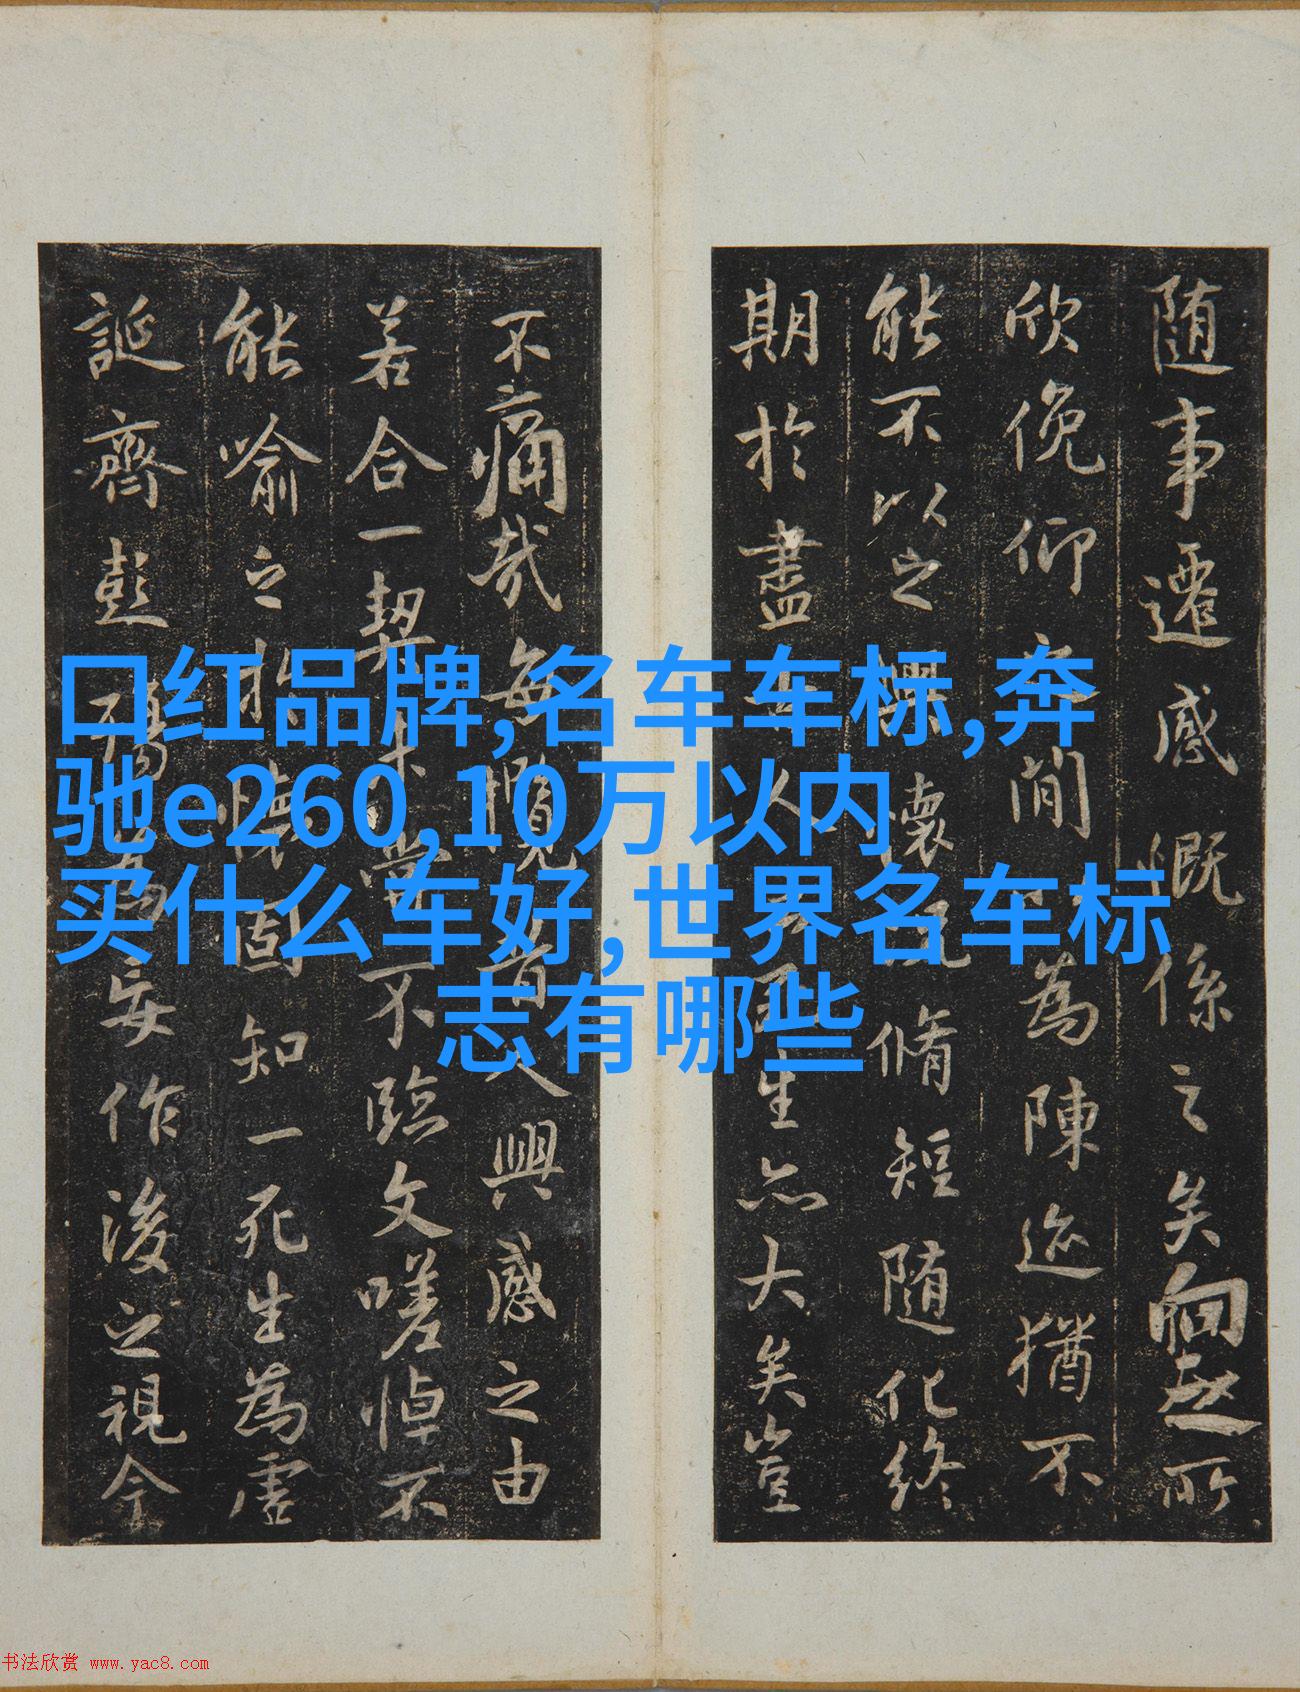 随事遷感慨係之矣向之所
欣俛仰之間以為陳迹猶不
能不以之興懷況脩短随化終
期於盡古人云死生亦大矣豈
不痛哉每攬昔人興感之由
若合一契未嘗不臨文嗟悼不
能喻之於懷固知一死生為虛
誕齊彭殤為妄作後之視今
口红品牌,名车车标,奔
驰e260,10万以内
买什么车好,世界名车标
志有哪些
书法欣赏 www.yac8.com